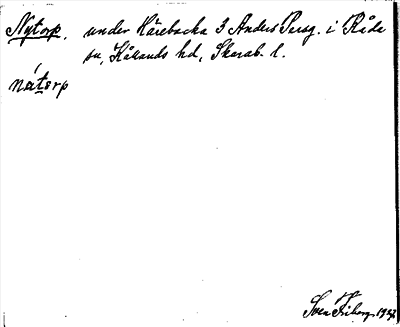 Nytorp. under Härebacka 3 Anders Persg. i Råda
sn, Kållands hd, Skarab. l.
nátorp
Sven Friberg 1927